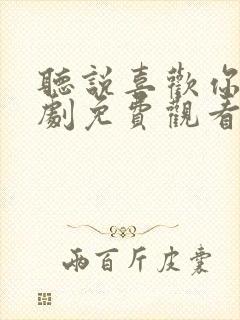 聽説喜歡你
劇免費觀看
兩百斤皮囊